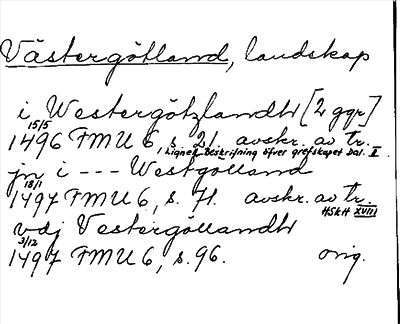 Västergötland, landskap
i Westergötzlandh [2 ggr]
15/5
1496 FMU 6, s. 21. avskr. av tr.
Lignell Beskrifning öfver grefskapet Dal. II.
jn i --- Westgolland
18/1
1497 FMU 6, s. 71. avskr. av tr.
HSkH XVIII
vdj Vestergöllandh
3/12
1497 FMU 6, s. 96. orig.